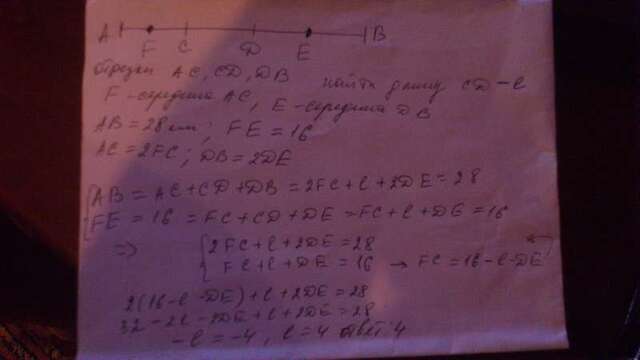 A F C D E B
отрезки AC, CD, DB найти длину CD - l
F - середина AC, E - середина DB
AB = 28 см; FE = 16
AC = 2FC; DB = 2DE
AB = AC + CD + DB = 2FC + l + 2DE = 28
FE = 16 = FC + CD + DE = FC + l + DE = 16
=> 2FC + l + 2DE = 28
FC + l + DE = 16 → FC = 16 - l - DE
2(16 - l - DE) + l + 2DE = 28
32 - 2l - 2DE + l + 2DE = 28
-l = -4, l = 4 ответ: 4